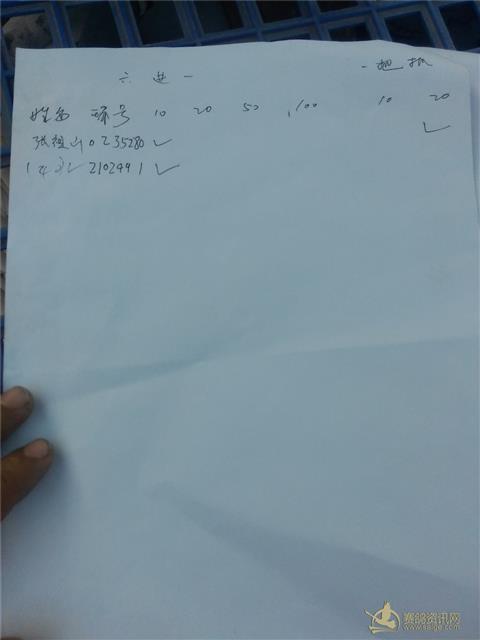 六进一 一把抓
姓名 环号 10 20 50 100 10 20
张 山 0235280 ✓ ✓
2102491 ✓
赛鸽资讯网
www.saige.com